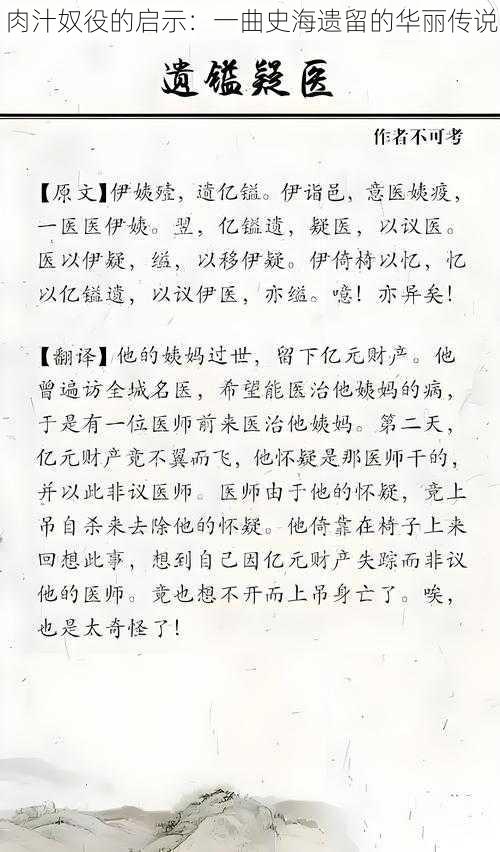 肉汁奴役的启示：一曲史海遗留的华丽传说
遗镒疑医
作者不可考
【原文】伊姨殪，遗亿镒。伊诣邑，意医姨疫，
一医医伊姨。翌，亿镒遗，疑医，以议医。
医以伊疑，缢，以移伊疑。伊倚椅以忆，忆
以亿镒遗，以议伊医，亦缢。噫！亦异矣！
【翻译】他的姨妈过世，留下亿元财产。他
曾遍访全城名医，希望能医治他姨妈的病，
于是有一位医师前来医治他姨妈。第二天，
亿元财产竟不翼而飞，他怀疑是那医师干的，
并以此非议医师。医师由于他的怀疑，竟上
吊自杀来去除他的怀疑。他倚靠在椅子上来
回想此事，想到自己因亿元财产失踪而非议
他的医师。竟也想不开而上吊身亡了。唉，
也是太奇怪了！